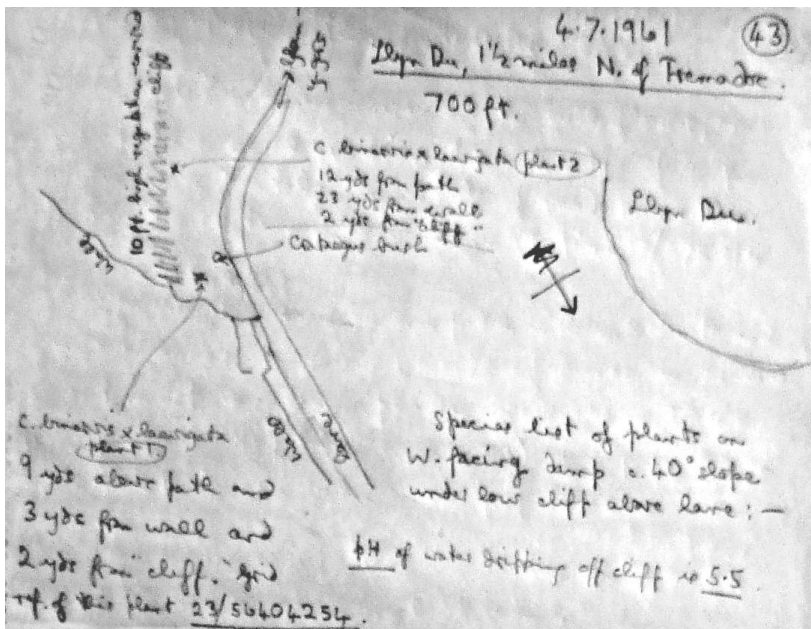 4.7.1961
43
Llyn Du, 1½ miles N. of Tremadoc.
700 ft.
10 ft. high vegetation-covered cliff
C. binervis x laevigata plant 2
12 yds from path
23 yds from wall
2 yds from "cliff"
Crataegus bush
Llyn Du.
Wall
Wall
lane
C. binervis x laevigata
plant 1
9 yds above path and
3 yds from wall and
2 yds from "cliff." Grid
ref. of this plant 23/56404254.
Species list of plants on
W. facing damp c. 40° slope
under low cliff above lane : —
pH of water dripping off cliff is 5.5